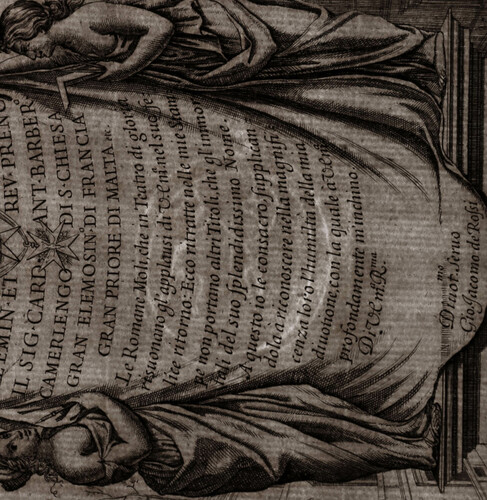 EMIN. ET REV. PREN
IL SIG. CARD. ANT. BARBER
CAMERLENGO DI S. CHIESA
GRAN ELEMOSIN. DI FRANCIA
GRAN PRIORE DI MALTA etc.
Le Romane Moli, che in Teatro di gloria
risuonano gl'applausi di V. Em. nel suo fe
lice ritorno: Ecco ritratte nelle mie Stam
pe non portano altri Titoli, che gl'immor
tali del suo splendidissimo Nome
A questo io le consacro supplican
dola a riconoscere nella magnifi
cenza loro l'humiltà della mia
diuotione con la quale a V. Em.
profondamente m'inchino.
D. V. Em. R.ma
Diuot. Seruo
Gio. Jacomo de Rossi